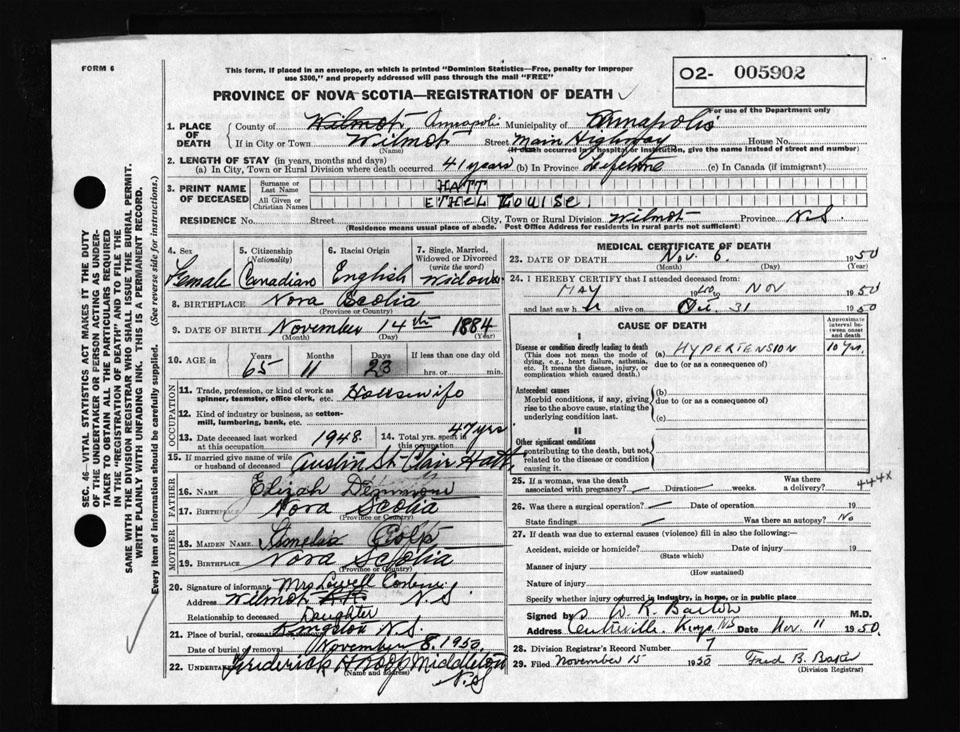 FORM 6
This form, if placed in an envelope, on which is printed "Dominion Statistics—Free, penalty for improper
use $300," and properly addressed will pass through the mail "FREE"
O2- 005902
For use of the Department only
PROVINCE OF NOVA SCOTIA—REGISTRATION OF DEATH
1. PLACE OF DEATH
County of Wilmot Annapolis Municipality of Annapolis
If in City or Town Wilmot Street Main Highway House No.
(Name) (If death occurred in a hospital or institution, give the name instead of street and number)
2. LENGTH OF STAY (in years, months and days)
(a) In City, Town or Rural Division where death occurred 41 years (b) In Province Lifetime (c) In Canada (if immigrant)
3. PRINT NAME OF DECEASED
Surname or Last Name HATT
All Given or Christian Names ETHEL LOUISE.
RESIDENCE No. Street City, Town or Rural Division Wilmot Province N.S.
(Residence means usual place of abode. Post Office Address for residents in rural parts not sufficient)
4. Sex Female
5. Citizenship (Nationality) Canadian
6. Racial Origin English
7. Single, Married, Widowed or Divorced (write the word) Widow
8. BIRTHPLACE Nova Scotia
(Province or Country)
9. DATE OF BIRTH November 14th 1884
(Month) (Day) (Year)
10. AGE in Years 65 Months 11 Days 23 If less than one day old
hrs. or min.
OCCUPATION
11. Trade, profession, or kind of work as
spinner, teamster, office clerk, etc. Housewife
12. Kind of industry or business, as cotton-
mill, lumbering, bank, etc.
13. Date deceased last worked at this occupation 1948. 14. Total yrs. spent in this occupation 47 yrs
15. If married give name of wife
or husband of deceased Austin St. Clair Hatt,
FATHER
16. NAME Elizah
17. BIRTHPLACE Nova Scotia
(Province or Country)
MOTHER
18. MAIDEN NAME
19. BIRTHPLACE Nova Scotia
(Province or Country)
20. Signature of informant Mrs Lowell
Address Wilmot N.S.
Relationship to deceased Daughter
21. Place of burial, Kingston N.S.
Date of burial or removal November 8, 1950.
22. UNDERTAKER Middleton
(Name and address)
N.S
MEDICAL CERTIFICATE OF DEATH
23. DATE OF DEATH Nov. 6. 1950
(Month) (Day) (Year)
24. I HEREBY CERTIFY that I attended deceased from:
MAY 1950, to NOV 1950
and last saw h alive on Oct. 31 1950
CAUSE OF DEATH
Approximate interval between onset and death
I
Disease or condition directly leading to death
(This does not mean the mode of
dying, e.g., heart failure, asthenia,
etc. It means the disease, injury, or
complication which caused death.)
(a) HYPERTENSION 10 yrs.
due to (or as a consequence of)
Antecedent causes
Morbid conditions, if any, giving
rise to the above cause, stating the
underlying condition last.
(b)
due to (or as a consequence of)
(c)
II
Other significant conditions
contributing to the death, but not
related to the disease or condition
causing it.
25. If a woman, was the death
associated with pregnancy? Duration weeks. Was there a delivery?
444x
26. Was there a surgical operation? Date of operation 19
State findings Was there an autopsy? No
27. If death was due to external causes (violence) fill in also the following:—
Accident, suicide or homicide? Date of injury 19
(State which)
Manner of injury
(How sustained)
Nature of injury
Specify whether injury occurred in industry, in home, or in public place
Signed by W. R. Barton M.D.
Address Centreville. Kings NS Date Nov. 11 1950.
28. Division Registrar's Record Number 7
29. Filed November 15 1950 Fred B. Baker
(Division Registrar)
SEC. 46—VITAL STATISTICS ACT MAKES IT THE DUTY
OF THE UNDERTAKER OR PERSON ACTING AS UNDER-
TAKER TO OBTAIN ALL THE PARTICULARS REQUIRED
IN THE "REGISTRATION OF DEATH" AND TO FILE THE
SAME WITH THE DIVISION REGISTRAR WHO SHALL ISSUE THE BURIAL PERMIT.
WRITE PLAINLY WITH UNFADING INK. THIS IS A PERMANENT RECORD.
Every item of information should be carefully supplied. (See reverse side for instructions.)